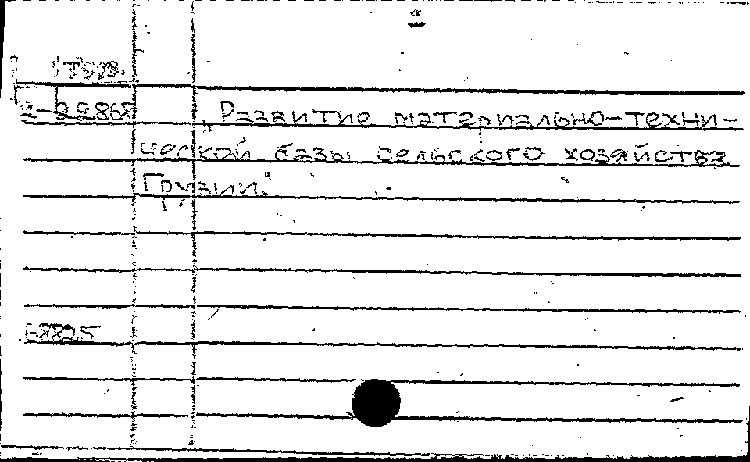 груз.
2-22868
Развитие материально-техни-
ческой базы сельского хозяйства
Грузии.